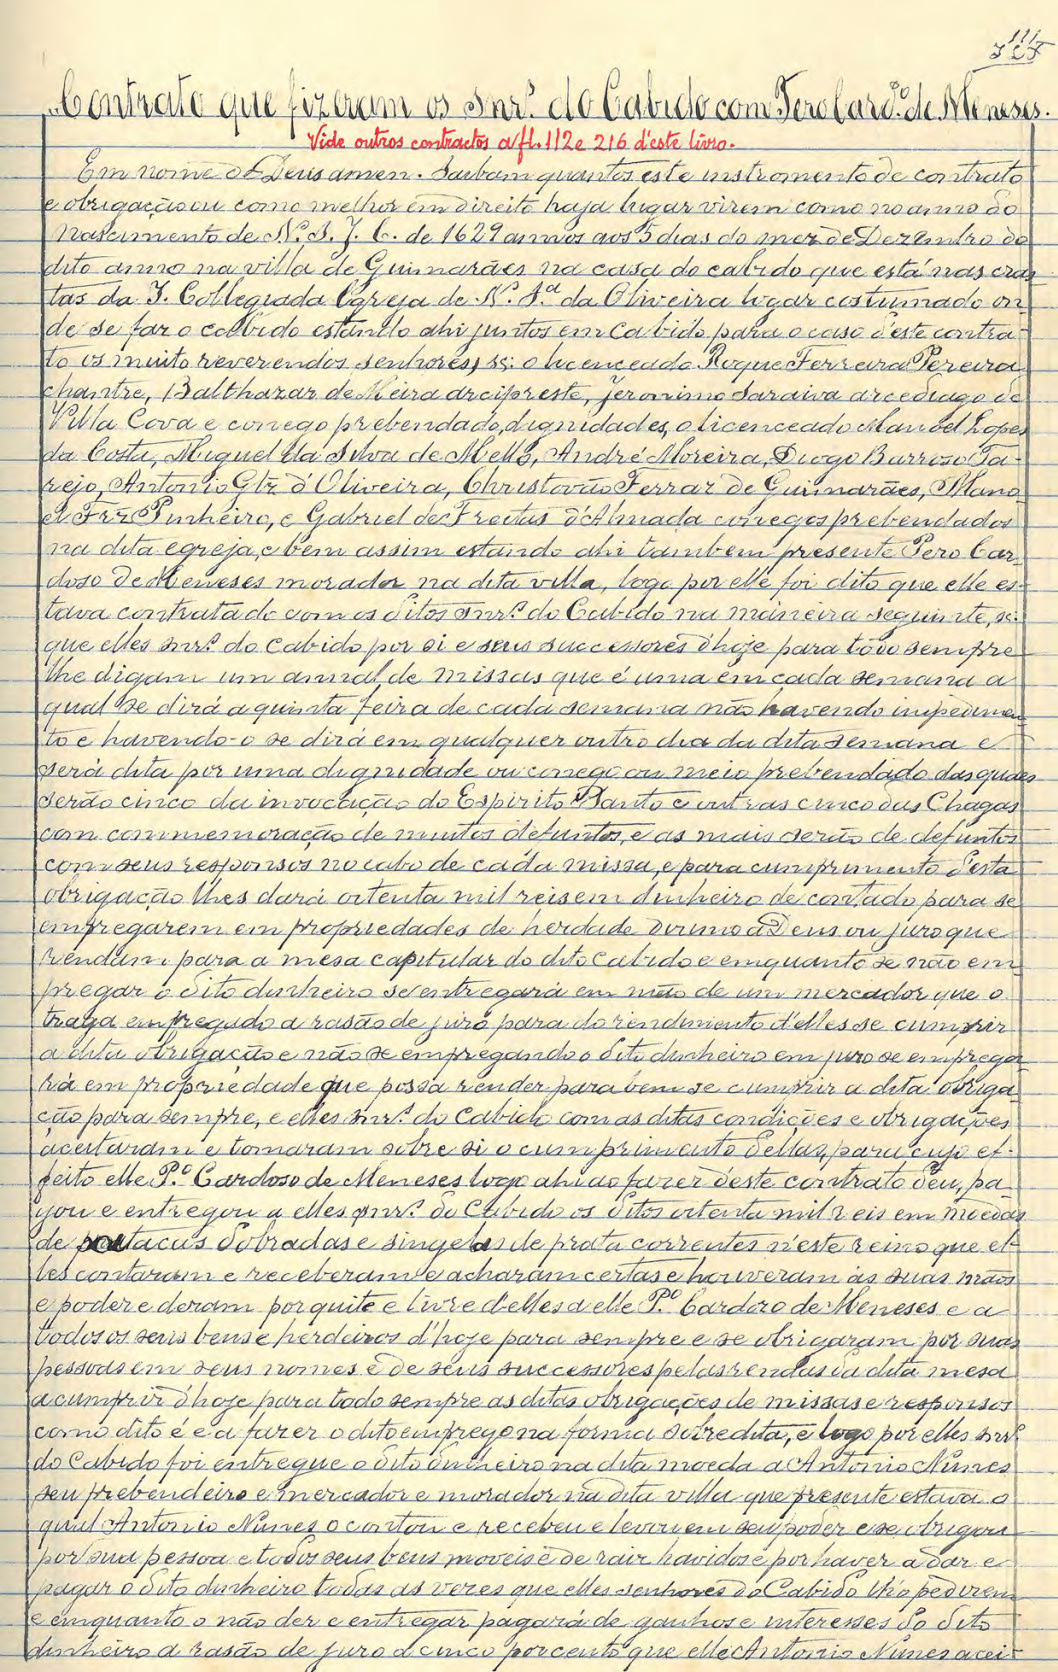 111
Contrato que fizeram os snr.ˢ do Cabido com Pero Card.º de Meneses.
Vide outros contractos a fl. 112 e 216 d'este livro.
Em nome de Deus amen. Saibam quantos este instromento de contrato
e obrigação ou como melhor em direito haja lugar virem como no anno do
Nascimento de N. S. J. C. de 1629 annos aos 5 dias do mez de Dezembro do
dito anno na villa de Guimarães na casa do cabido que está nas cras-
tas da I. Collegiada Egreja de N. S.ª da Oliveira logar costumado on-
de se faz o cabido estando ahi juntos em Cabido para o caso d'este contra-
to os muito reverendos senhores, sc: o licenceado Roque Ferreira Pereira
chantre, Balthazar de Meira arcipreste, Jeronimo Saraiva arcediago de
Villa Cova e conego prebendado, dignidades, o licenceado Manoel Lopes
da Costa, Miguel da Silva de Mello, André Moreira, Diogo Barroso Ta-
rejo, Antonio Glz d'Oliveira, Christovão Ferraz de Guimarães, Mano-
el Frz Pinheiro, e Gabriel de Freitas d'Almada conegos prebendados
na dita egreja, e bem assim estando ahi tambem presente Pero Car-
doso de Meneses morador na dita villa, logo por elle foi dito que elle es-
tava contratado com os ditos snr.ˢ do Cabido na maneira seguinte, sc:
que elles snr.ˢ do Cabido por si e seus successores d'hoje para todo sempre
lhe digam um annal de missas que é uma em cada semana a
qual se dirá a quinta feira de cada semana não havendo impedimen-
to e havendo-o se dirá em qualquer outro dia da dita semana e
será dita por uma dignidade ou conego ou meio prebendado das quaes
serão cinco da invocação do Espirito Santo e outras cinco das Chagas
com commemoração de muitos defuntos, e as mais serão de defuntos
com seus responsos no cabo de cada missa, e para cumprimento d'esta
obrigação lhes dará oitenta mil reis em dinheiro de contado para se
empregarem em propriedades de herdade dizimo a Deus ou juro que
rendam para a mesa capitular do dito Cabido e emquanto se não em-
pregar o dito dinheiro se entregará em mão de um mercador que o
traga empregado a rasão de juro para do rendimento d'elles se cumprir
a dita obrigação e não se empregando o dito dinheiro em juro se emprega-
rá em propriedade que possa render para bem se cumprir a dita obriga-
ção para sempre, e elles snr.ˢ do Cabido com as ditas condições e obrigações
aceitaram e tomaram sobre si o cumprimento dellas, para cujo ef-
feito elle P.º Cardoso de Meneses logo ahi ao fazer d'este contrato deu, pa-
gou e entregou a elles snr.ˢ do Cabido os ditos oitenta mil reis em moedas
de patacas dobradas e singelas de prata correntes n'este reino que el-
les contaram e receberam e acharam certas e houveram ás suas mãos
e poder e deram por quite e livre d'elles a elle P.º Cardozo de Meneses e a
todos os seus bens e herdeiros d'hoje para sempre e se obrigaram por suas
pessoas em seus nomes e de seus successores pelas rendas da dita mesa
a cumprir d'hoje para todo sempre as ditas obrigações de missas e responsos
como dito é e a fazer o dito emprego na forma sobredita, e logo por elles snr.ˢ
do Cabido foi entregue o dito dinheiro na dita moeda a Antonio Nunes
seu prebendeiro e mercador e morador na dita villa que presente estava o
qual Antonio Nunes o contou e recebeu e levou em seu poder e se obrigou
por sua pessoa e todos seus bens moveis e de raiz havidos e por haver a dar e
pagar o dito dinheiro todas as vezes que elles senhores do Cabido lh'o pedirem
e emquanto o não der e entregar pagará de ganhos e interesses do dito
dinheiro a rasão de juro a cinco por cento que elle Antonio Nunes acei-